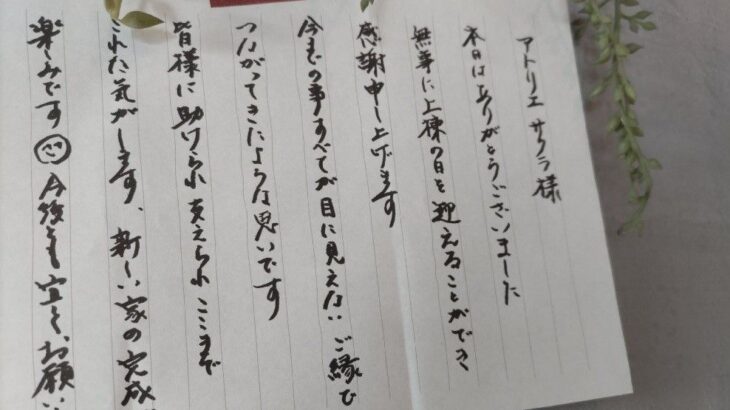 アトリエ サクラ様
本日はありがとうございました
無事に上棟の日を迎えることができ
感謝申し上げます
今までの事すべてが目に見えない ご縁で
つながってきたような思いです
皆様に助けられ 支えられ ここまで
これた気がします、新しい家の完成
楽しみです 今後とも宜しくお願い